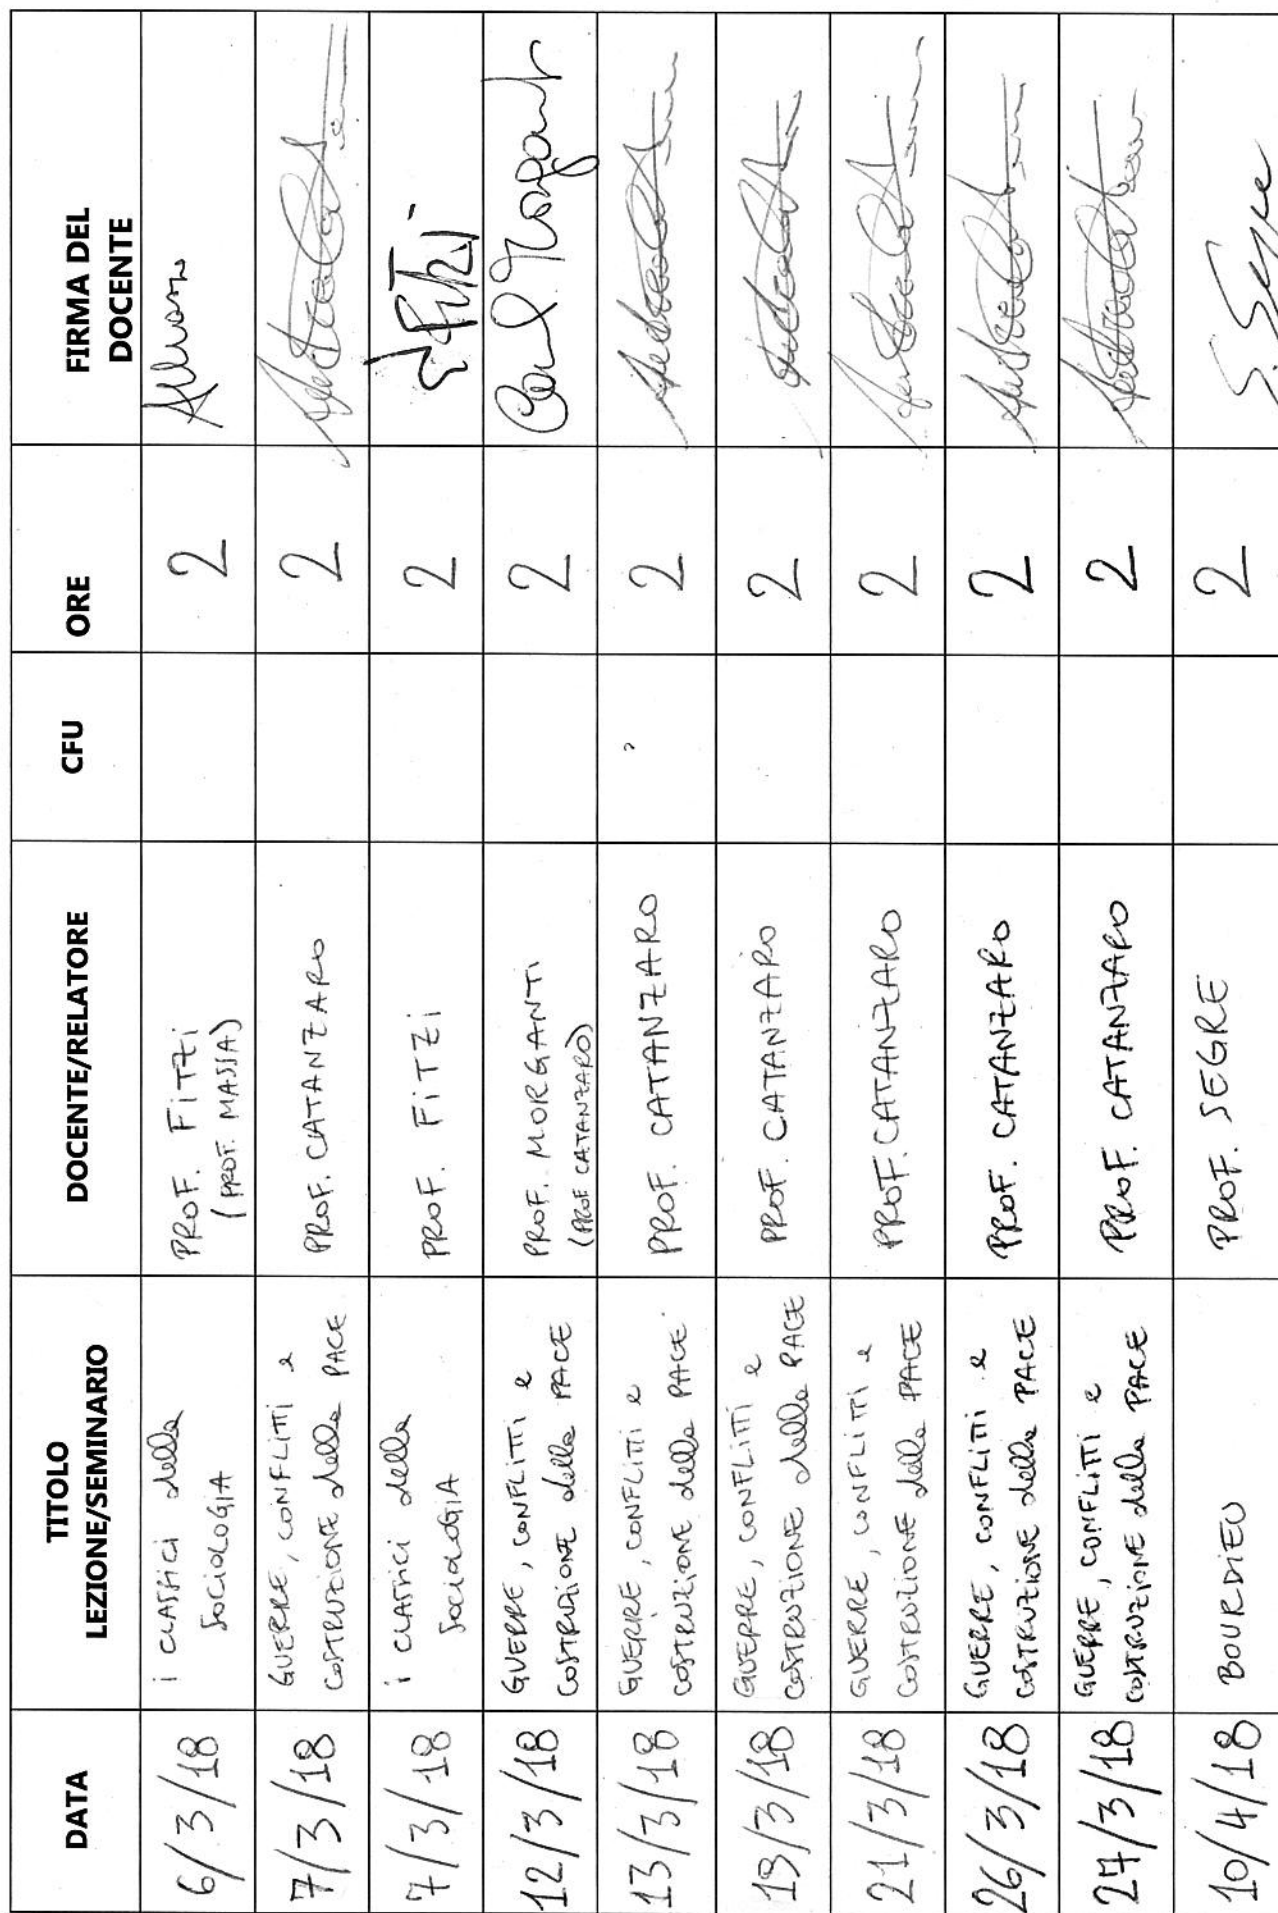 DATA
TITOLO
LEZIONE/SEMINARIO
DOCENTE/RELATORE
CFU
ORE
FIRMA DEL
DOCENTE
6/3/18
i CLASSICI della
SOCIOLOGIA
PROF. FITZI
(PROF. MASSA)
2
7/3/18
GUERRE, CONFLITTI e
COSTRUZIONE della PACE
PROF. CATANZARO
2
7/3/18
i CLASSICI della
SOCIOLOGIA
PROF. FITZI
2
Fitzi
12/3/18
GUERRE, CONFLITTI e
COSTRUZIONE della PACE
PROF. MORGANTI
(PROF CATANZARO)
2
13/3/18
GUERRE, CONFLITTI e
COSTRUZIONE della PACE
PROF. CATANZARO
2
19/3/18
GUERRE, CONFLITTI e
COSTRUZIONE della PACE
PROF. CATANZARO
2
21/3/18
GUERRE, CONFLITTI e
COSTRUZIONE della PACE
PROF. CATANZARO
2
26/3/18
GUERRE, CONFLITTI e
COSTRUZIONE della PACE
PROF. CATANZARO
2
27/3/18
GUERRE, CONFLITTI e
COSTRUZIONE della PACE
PROF. CATANZARO
2
10/4/18
BOURDIEU
PROF. SEGRE
2
S. Segre